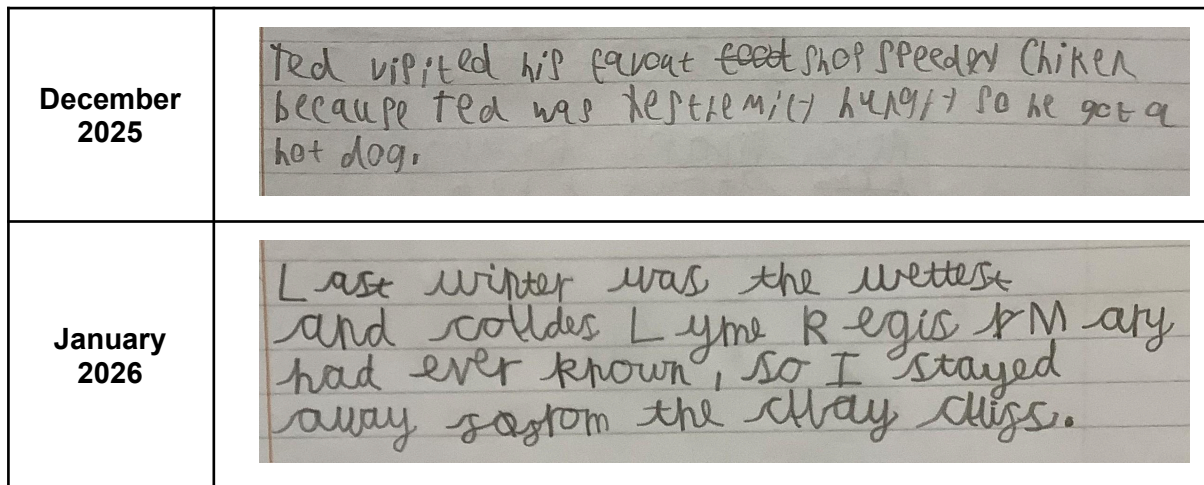 December
2025
Ted visited his favout food shop speedey Chiken
because Ted was hungry so he got a
hot dog.
January
2026
Last winter was the wettest
and colldes Lyme Regis Mary
had ever known, so I stayed
away from the clay cliffs.